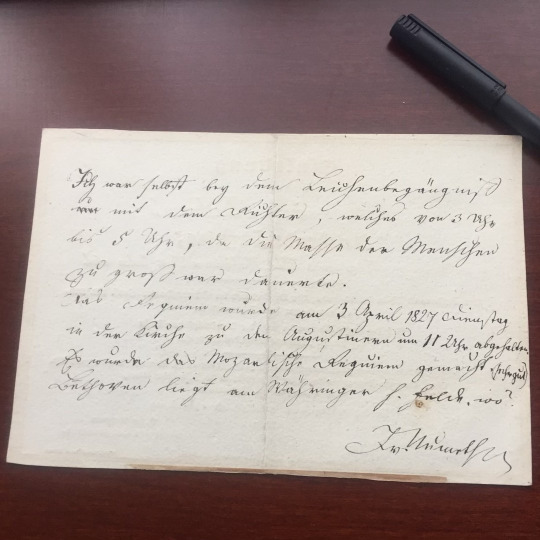 Ich war selbst bey dem Leichenbegängniß
mit dem Richter, welches von 3 Uhr
bis 5 Uhr, da die Masse der Menschen
zu gross war dauerte.
Das Requiem wurde am 3 April 1827 Dienstag
in der Kirche zu den Augustinern um 11 Uhr abgehalten.
Es wurde das Mozartische Requiem gemacht (sehr gut)
Bethoven liegt am Währinger f. Felde. wo?